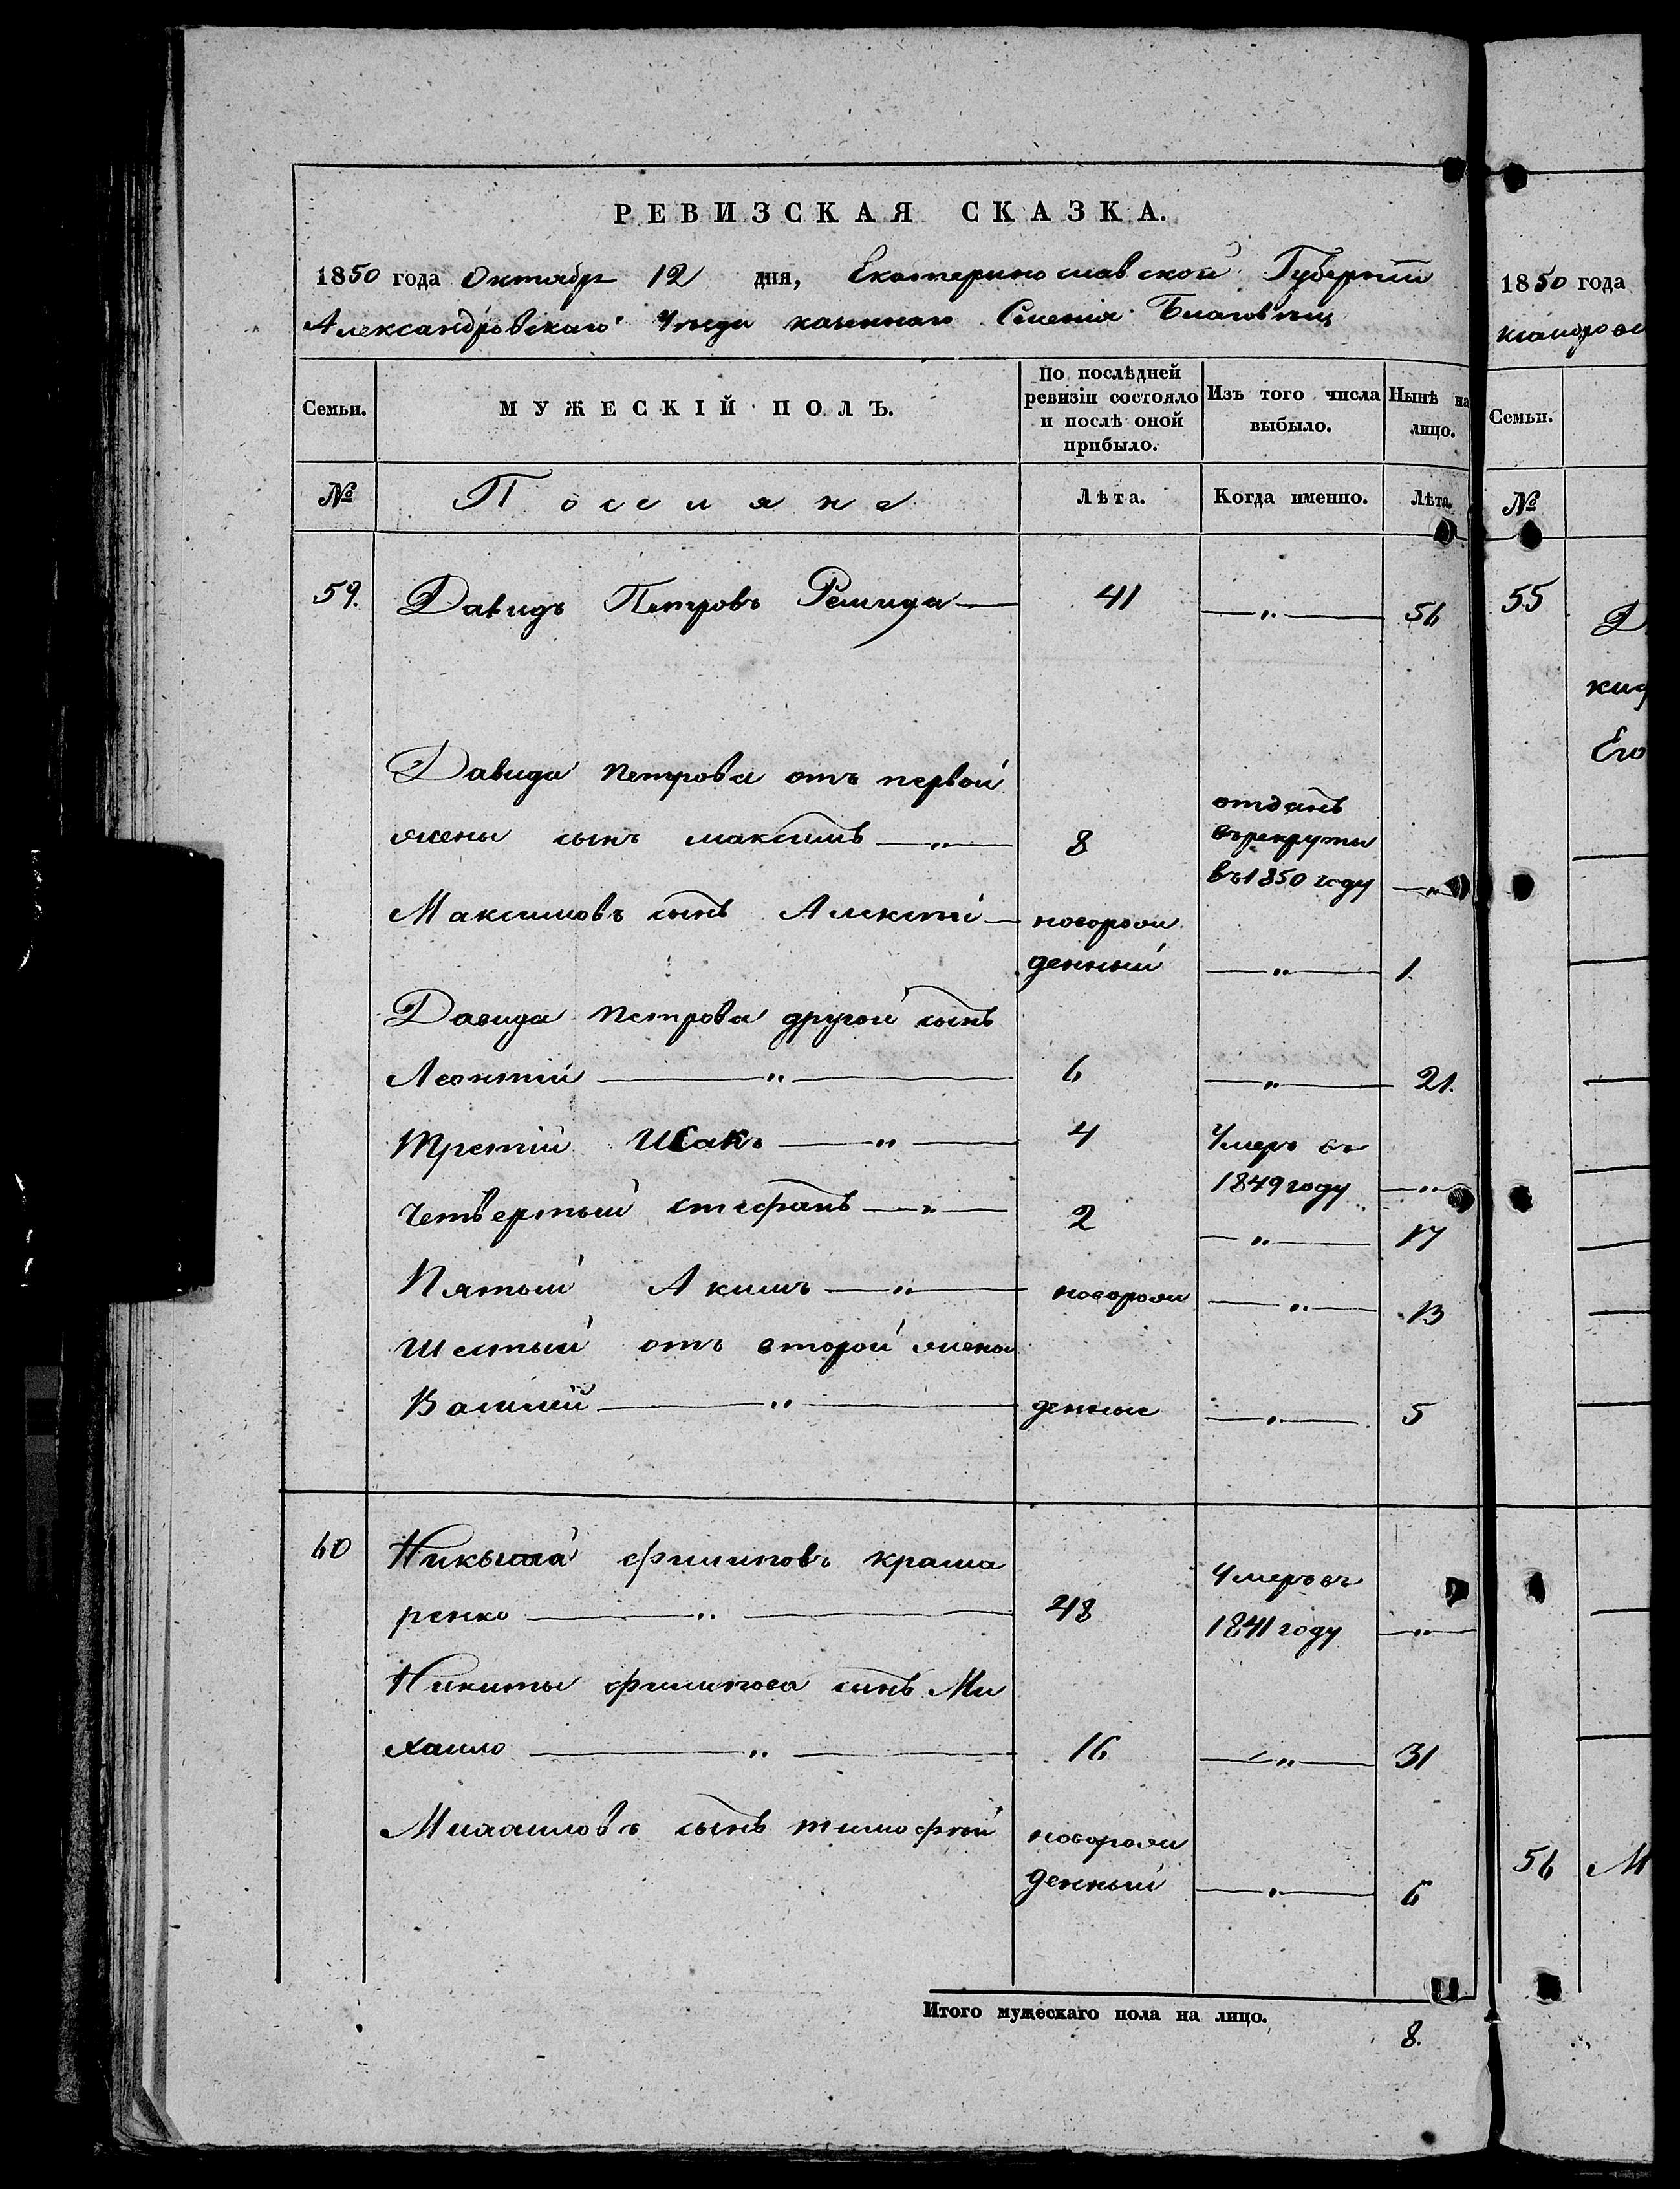 РЕВИЗСКАЯ СКАЗКА.
1850 года Октября 12 дня, Екатеринославской Губернiи
Александровскаго Уезда казеннаго Селенiя Благовѣщ
Семьи.
МУЖЕСКIЙ ПОЛЪ.
По послѣдней ревизiи состояло и послѣ оной прибыло.
Изъ того числа выбыло.
Нынѣ на лицо.
№ Поселяне Лѣта. Когда именно. Лѣта.
59. Давидъ Петровъ 41 — „ — 56
Давида Петрова отъ первой
жены сынъ максимъ — „ — 8 отданъ
въ рекруты
въ 1850 году — „
Максимовъ сынъ Алексѣй — новорож
денный — „ — 1.
Давида Петрова другой сынъ
Леонтiй — „ — 6 — „ — 21.
Третiй Исакъ — „ — 4 Умеръ въ
1849 году — „ —
Четвертый стефанъ — „ — 2 — „ — 17
Пятый Акимъ — „ — новорож — „ — 13
Шестый отъ второй жены
Василiй — „ — денные — „ — 5
60 Никита филиповъ краша
ренко — „ — 48 Умеръ въ
1841 году — „ —
Никиты филипова сынъ Ми
хаило — „ — 16 — „ — 31
Михаиловъ сынъ тимофѣй новорож
денный — „ — 6
Итого мужескаго пола на лицо.
8.
1850 года
Семьи.
№
55 Д
Его
56 М